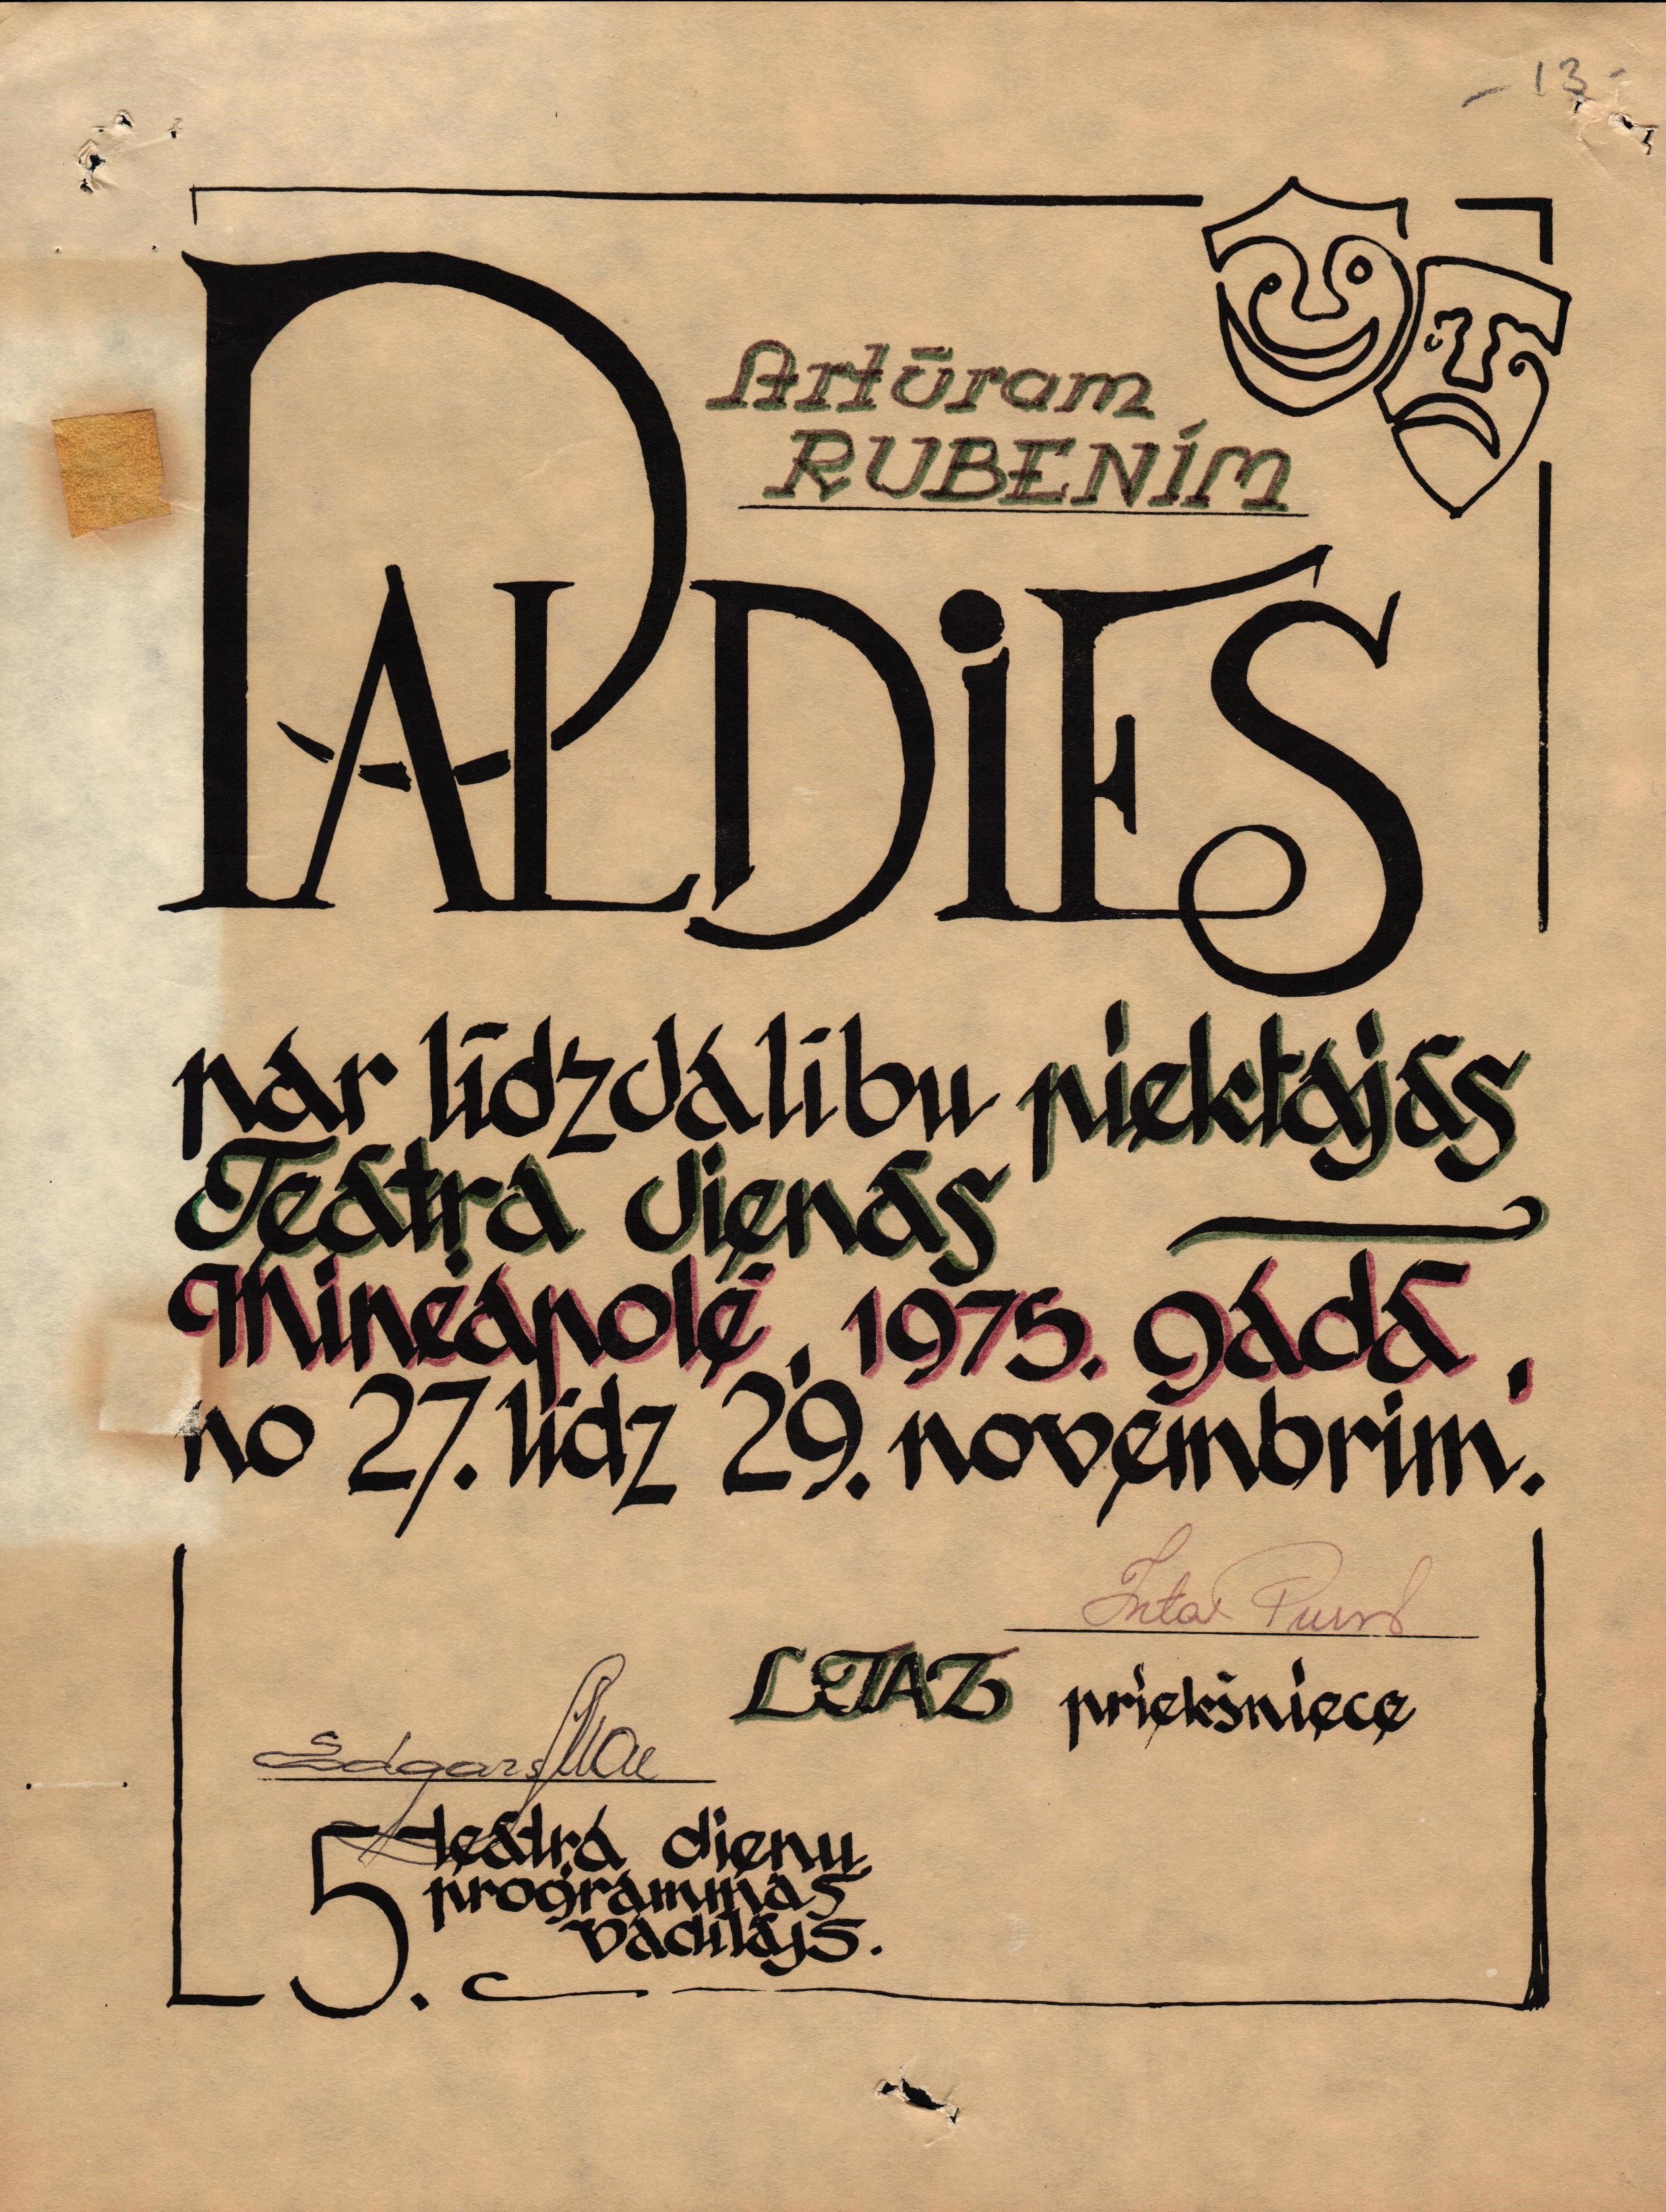 - 13 -
Artūram
RUBENĪM
PALDIES
par līdzdalību piektajās
Teātra dienās
Mineapolē, 1975. gadā,
no 27. līdz 29. novembrim.
LETAZ priekšniece
Edgars
5. teātra dienu
programmas
vadītājs.